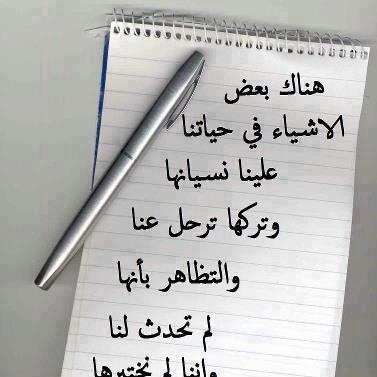 هناك بعض
الاشياء في حياتنا
علينا نسيانها
وتركها ترحل عنا
والتظاهر بأنها
لم تحدث لنا
واننا لم نختبرها